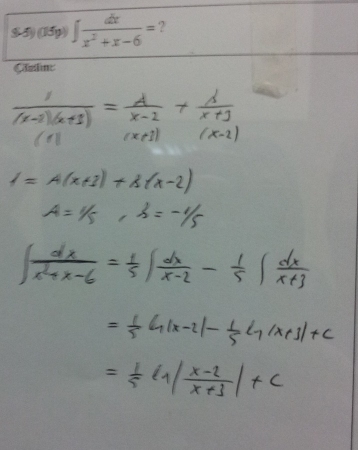 S-5) (15p) ∫ dx / (x² + x - 6) = ?
Çözüm:
1 / ((x-2)(x+3)) = A / (x-2) + B / (x+3)
(1) (x+3) (x-2)
1 = A(x+3) + B(x-2)
A = 1/5 , B = -1/5
∫ dx / (x²+x-6) = 1/5 ∫ dx / (x-2) - 1/5 ∫ dx / (x+3)
= 1/5 ln|x-2| - 1/5 ln|x+3| + C
= 1/5 ln| (x-2) / (x+3) | + C